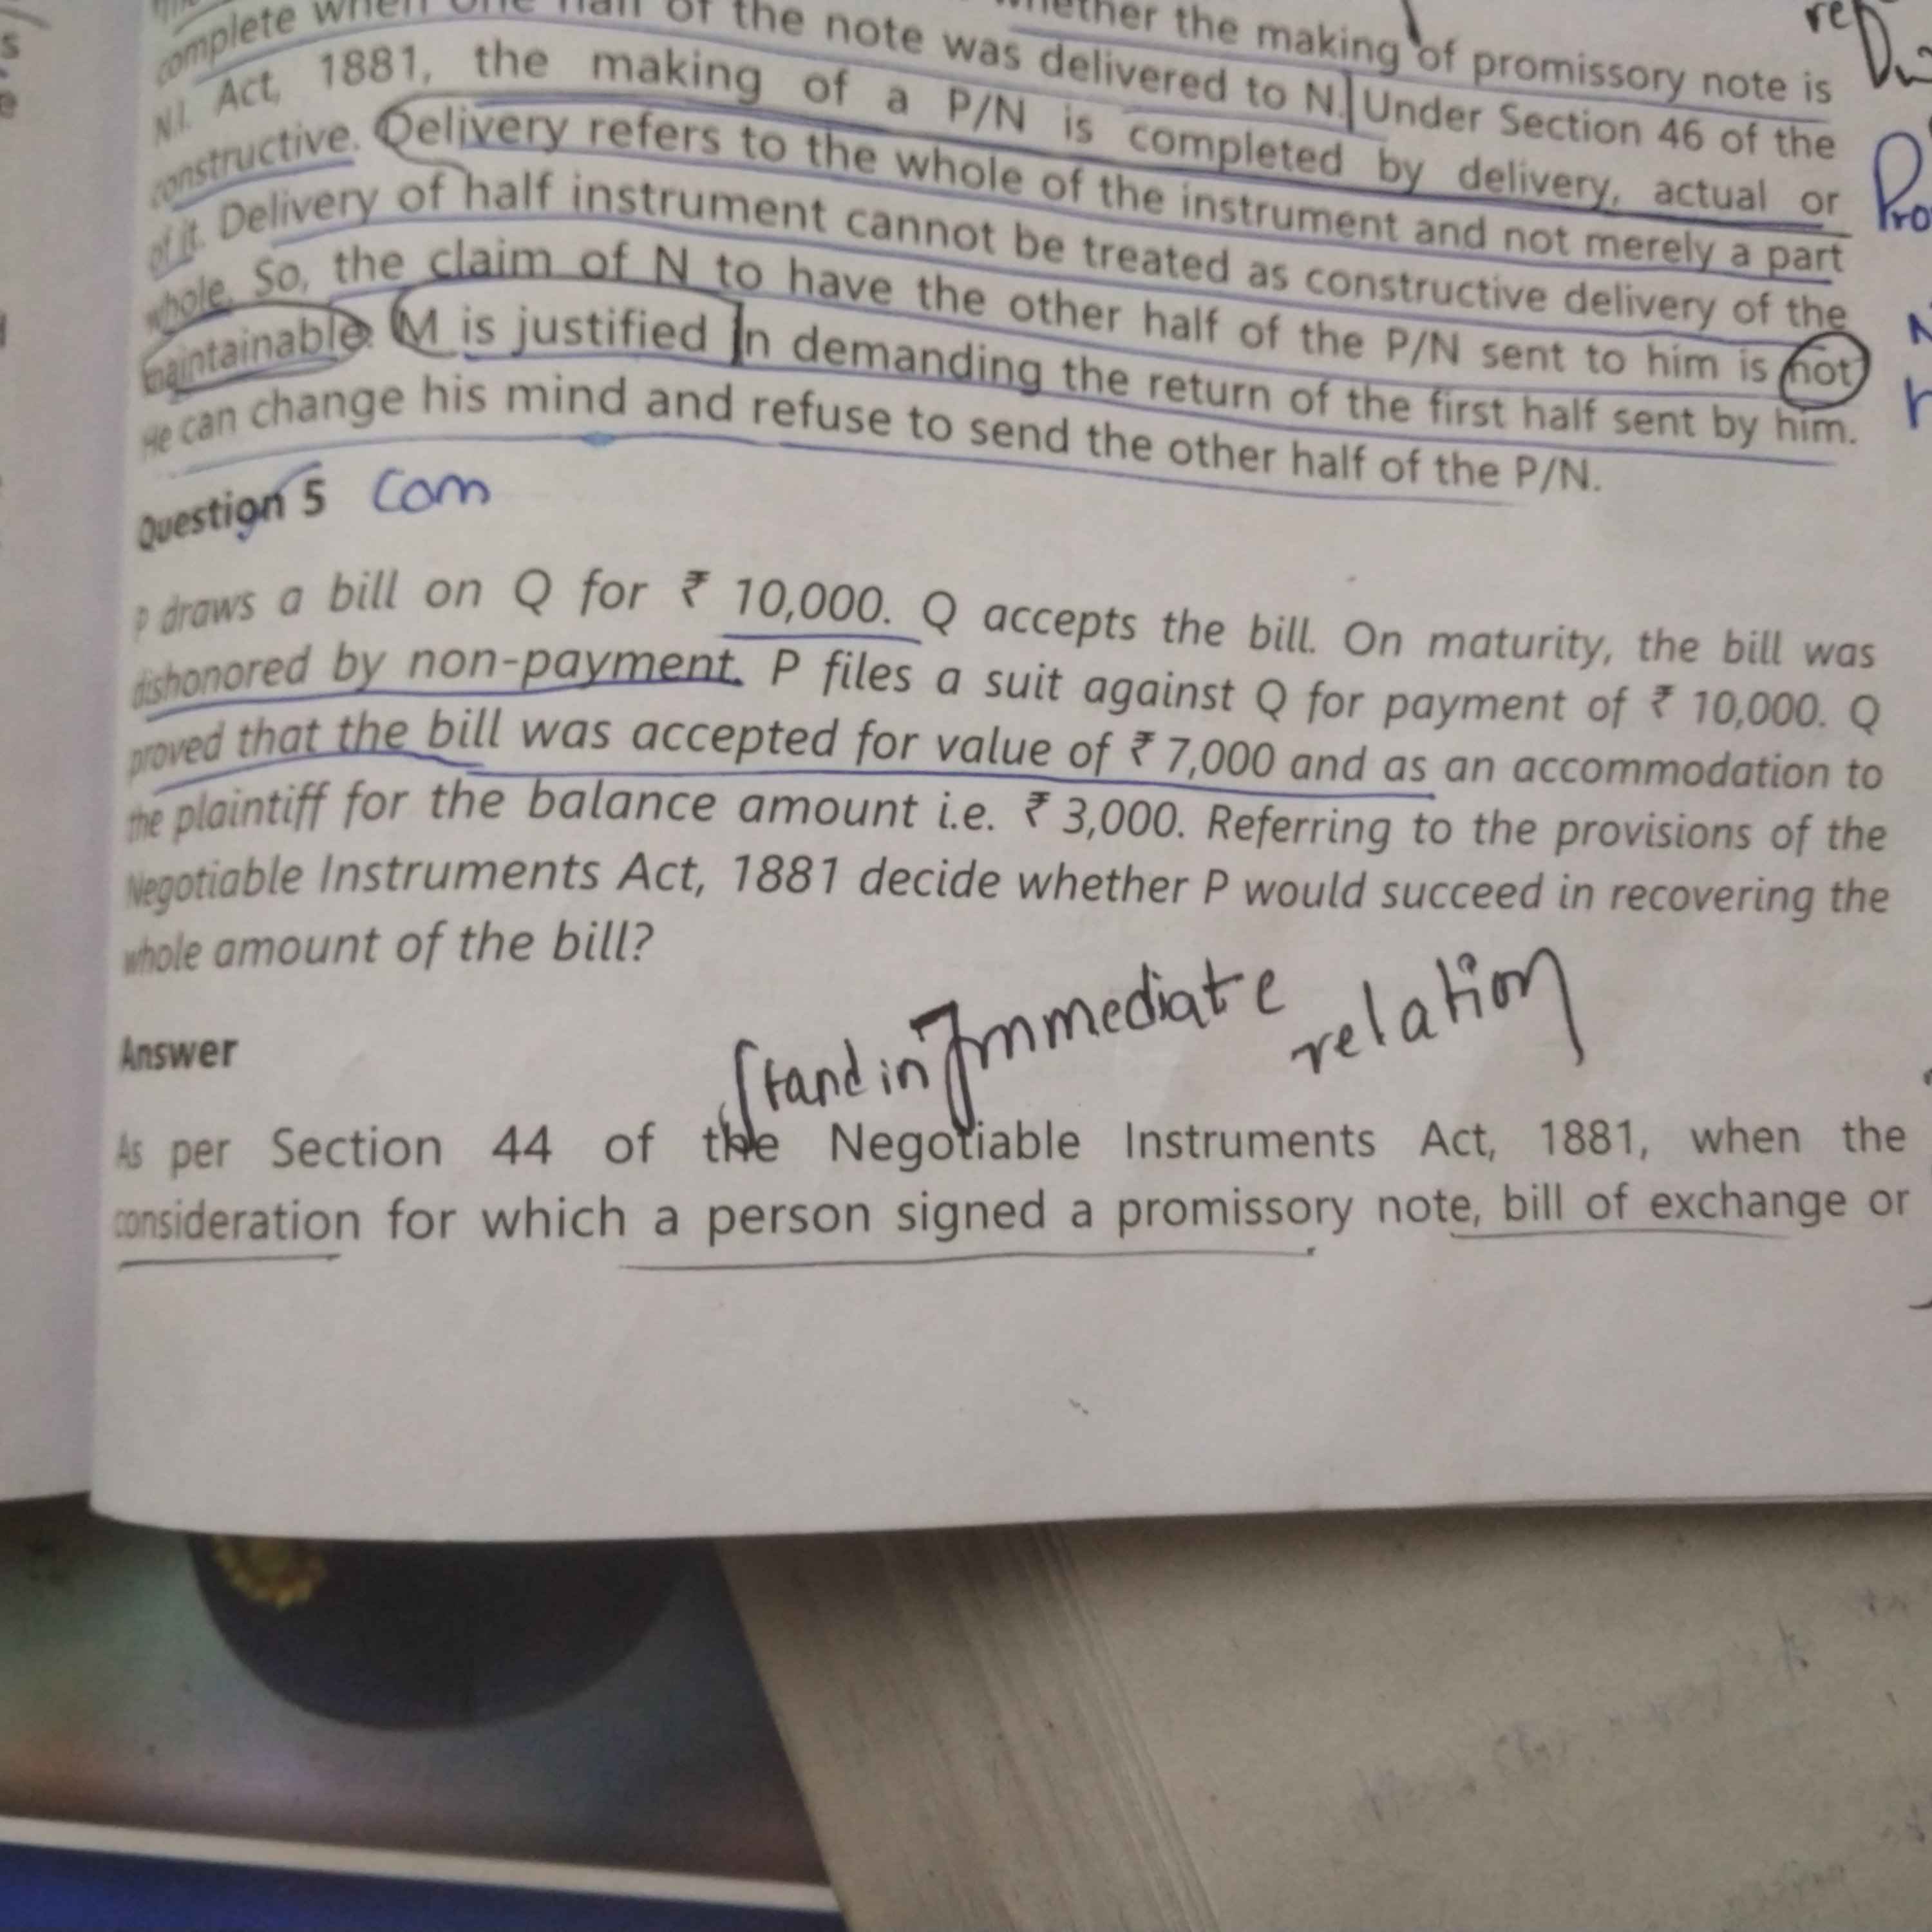 complete when one half of the note was delivered to N. Under Section 46 of the
whether the making of promissory note is
N.I. Act, 1881, the making of a P/N is completed by delivery, actual or
constructive. Delivery refers to the whole of the instrument and not merely a part
of it. Delivery of half instrument cannot be treated as constructive delivery of the
whole. So, the claim of N to have the other half of the P/N sent to him is not
maintainable. M is justified in demanding the return of the first half sent by him.
He can change his mind and refuse to send the other half of the P/N.
Question 5 Com
P draws a bill on Q for ₹ 10,000. Q accepts the bill. On maturity, the bill was
dishonored by non-payment. P files a suit against Q for payment of ₹ 10,000. Q
proved that the bill was accepted for value of ₹ 7,000 and as an accommodation to
the plaintiff for the balance amount i.e. ₹ 3,000. Referring to the provisions of the
Negotiable Instruments Act, 1881 decide whether P would succeed in recovering the
whole amount of the bill?
Stand in Immediate relation
Answer
As per Section 44 of the Negotiable Instruments Act, 1881, when the
consideration for which a person signed a promissory note, bill of exchange or